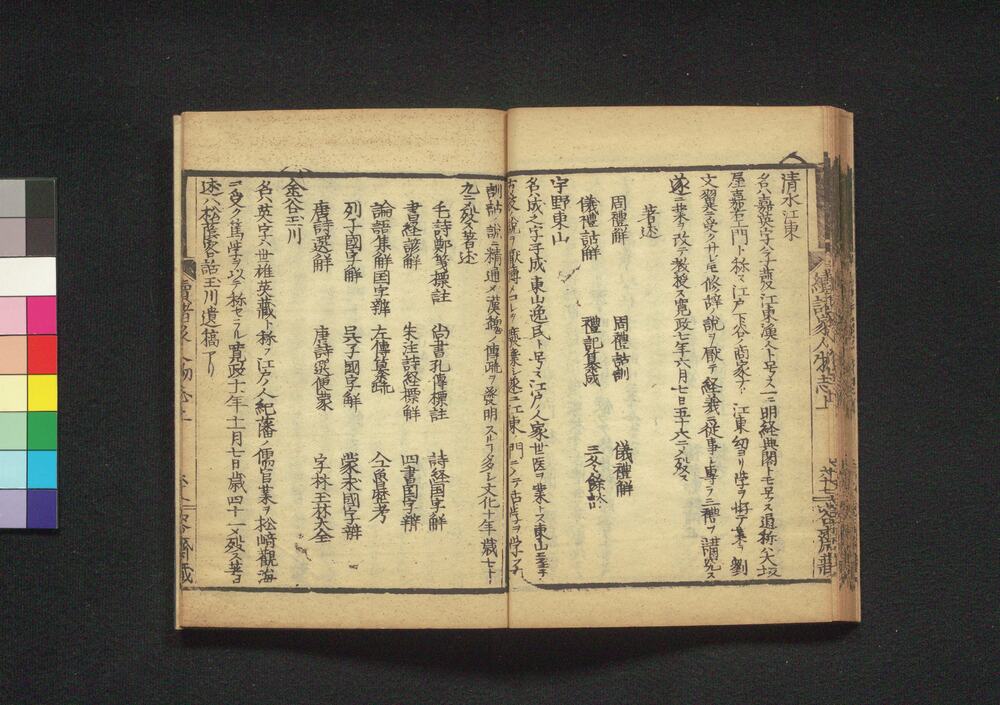 清水江東
名ハ嘉英字ハ子發江東漁人ト号ス一ニ明経典閣トモ号ス通称ハ大坂
屋嘉右衛門ト称ス江戸下谷ノ商家ナリ江東幼ヨリ学ヲ好テ業ヲ劉
文翼ニ受クサレトモ修辞ノ説ヲ厭テ経義ニ従事ト専ラ三礼ヲ講究ス
遂ニ業ヲ改テ教授ス寛政七年六月七日五十六ニメ殁ス
著述
周禮解 周禮詁訓 儀禮解
儀禮詁解 禮記纂成 三冬餘
宇野東山
名ハ成之字子成東山逸民ト号ス江戸ノ人家世医ヲ業トス東山ニ至テ
訓詁ノ説ニ精通メ漢魏ノ傳疏ヲ發明スルコト多シ文化十年歳七十
九ニメ殁ス著述
毛詩鄭箋標註 尚書孔傳標註 詩経国字解
書経諺解 朱注詩経標解 四書国字辨
論語集解国字辨 左傳纂疏 考
列子國字解 呉子國字解 蒙求國字辨
唐詩選解 唐詩選便蒙 字林玉林大全
金谷玉川
名ハ英字ハ世雄英藏ト称ス江戸ノ人紀藩ノ儒官業ヲ松崎觀海
ニ受ク篤学ヲ以テ称セラル寛政十一年十一月七日歳四十一メ殁ス著
述ハ松蔭客話玉川遺稿アリ